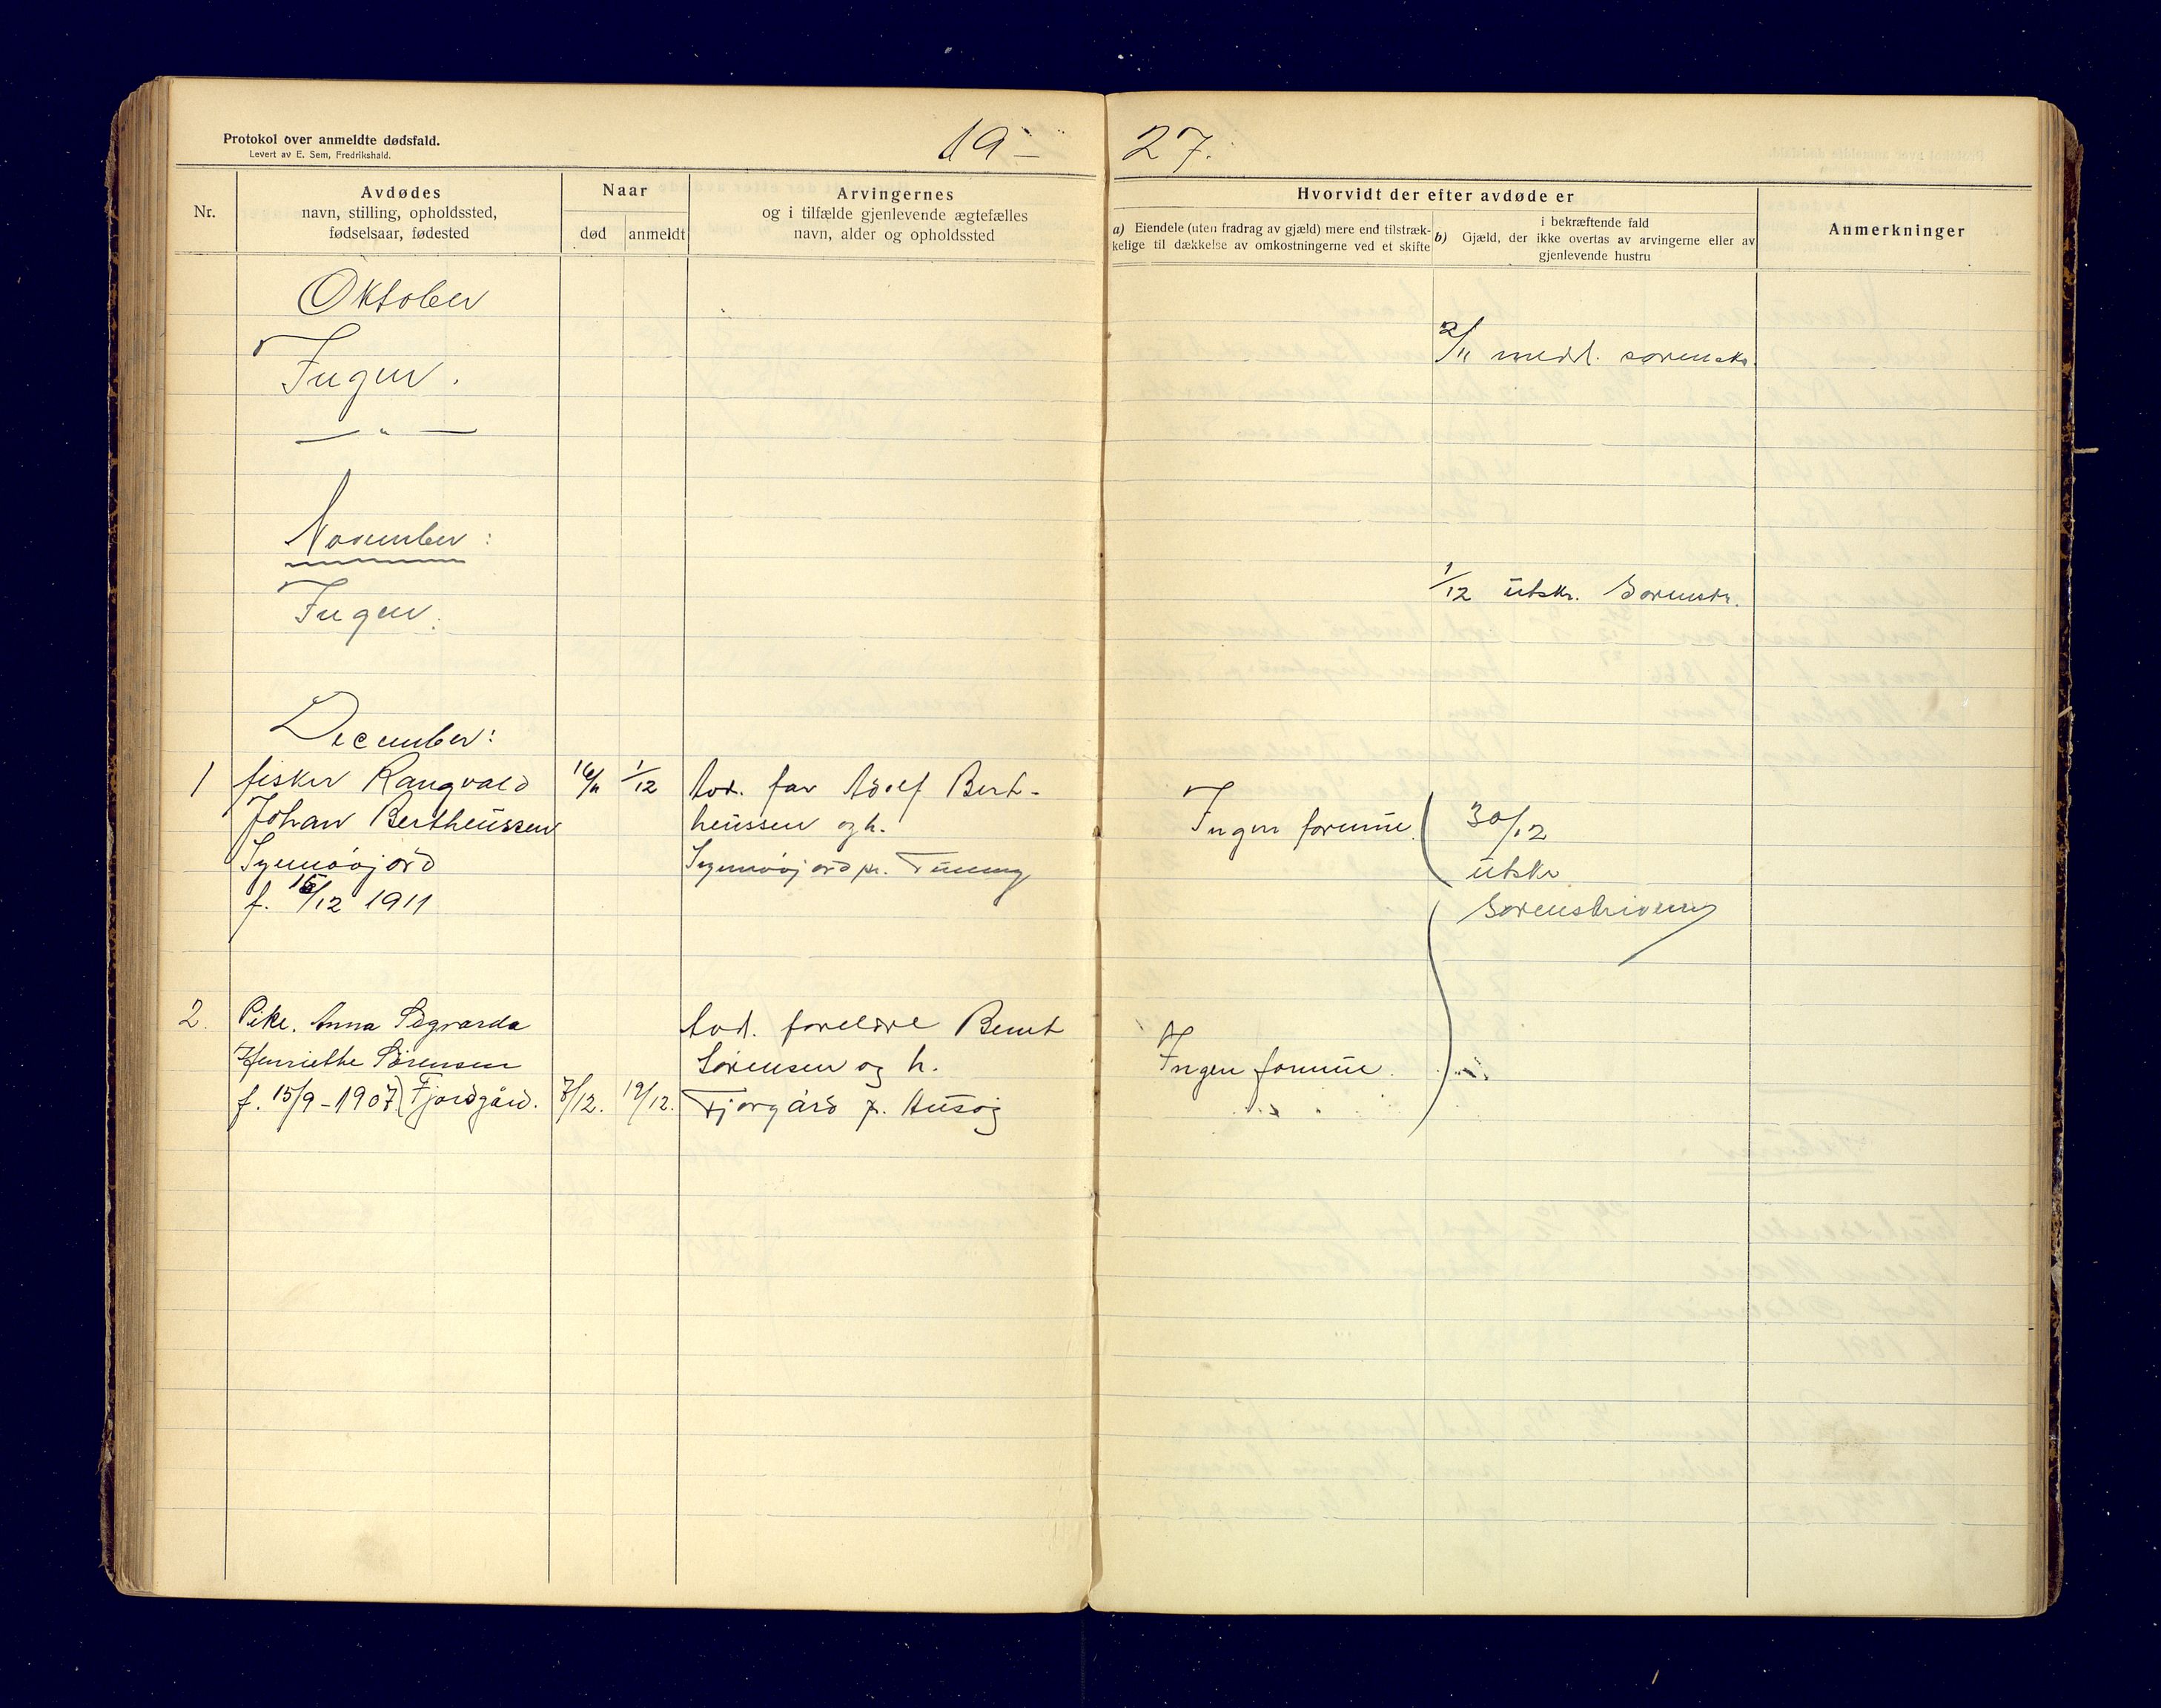 Protokol over anmeldte dødsfald.
Levert av E. Sem, Fredrikshald.
19 – 27.
Nr.
Avdødes
navn, stilling, opholdssted,
fødselsaar, fødested
Naar
død
anmeldt
Arvingernes
og i tilfælde gjenlevende ægtefælles
navn, alder og opholdssted
Hvorvidt der efter avdøde er
a) Eiendele (uten fradrag av gjæld) mere end tilstræk-
kelige til dækkelse av omkostningerne ved et skifte
i bekræftende fald
b) Gjæld, der ikke overtas av arvingerne eller av
gjenlevende hustru
Anmerkninger
Oktober
Ingen.
2/11 medd. sorenskr.
— " —
November:
Ingen.
1/12 utskr. Sorenskr.
December:
1 fisker Rangvald 16/11 1/12 Avd. far Adolf Bert-
Johan Bertheussen heussen og h.
f. 15/12 1911
Ingen formue. 30/12
utskr.
Sorenskriveren
2. Pike. Anna Sigvarda Avd. foreldre Bernt
Henriethe Sørensen Sørensen og h.
f. 15/9-1907 Fjordgård. 7/12. 19/12. Fjorgård p. Husøy
Ingen formue.